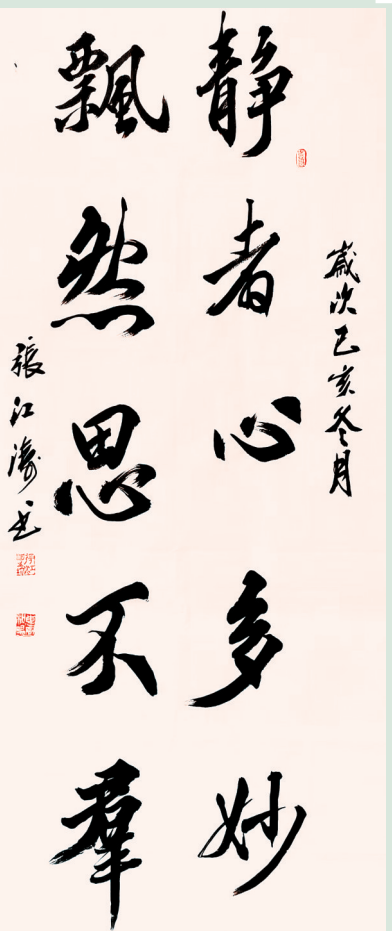 歲次己亥冬月
静者心多妙
飄然思不羣
張江濤書